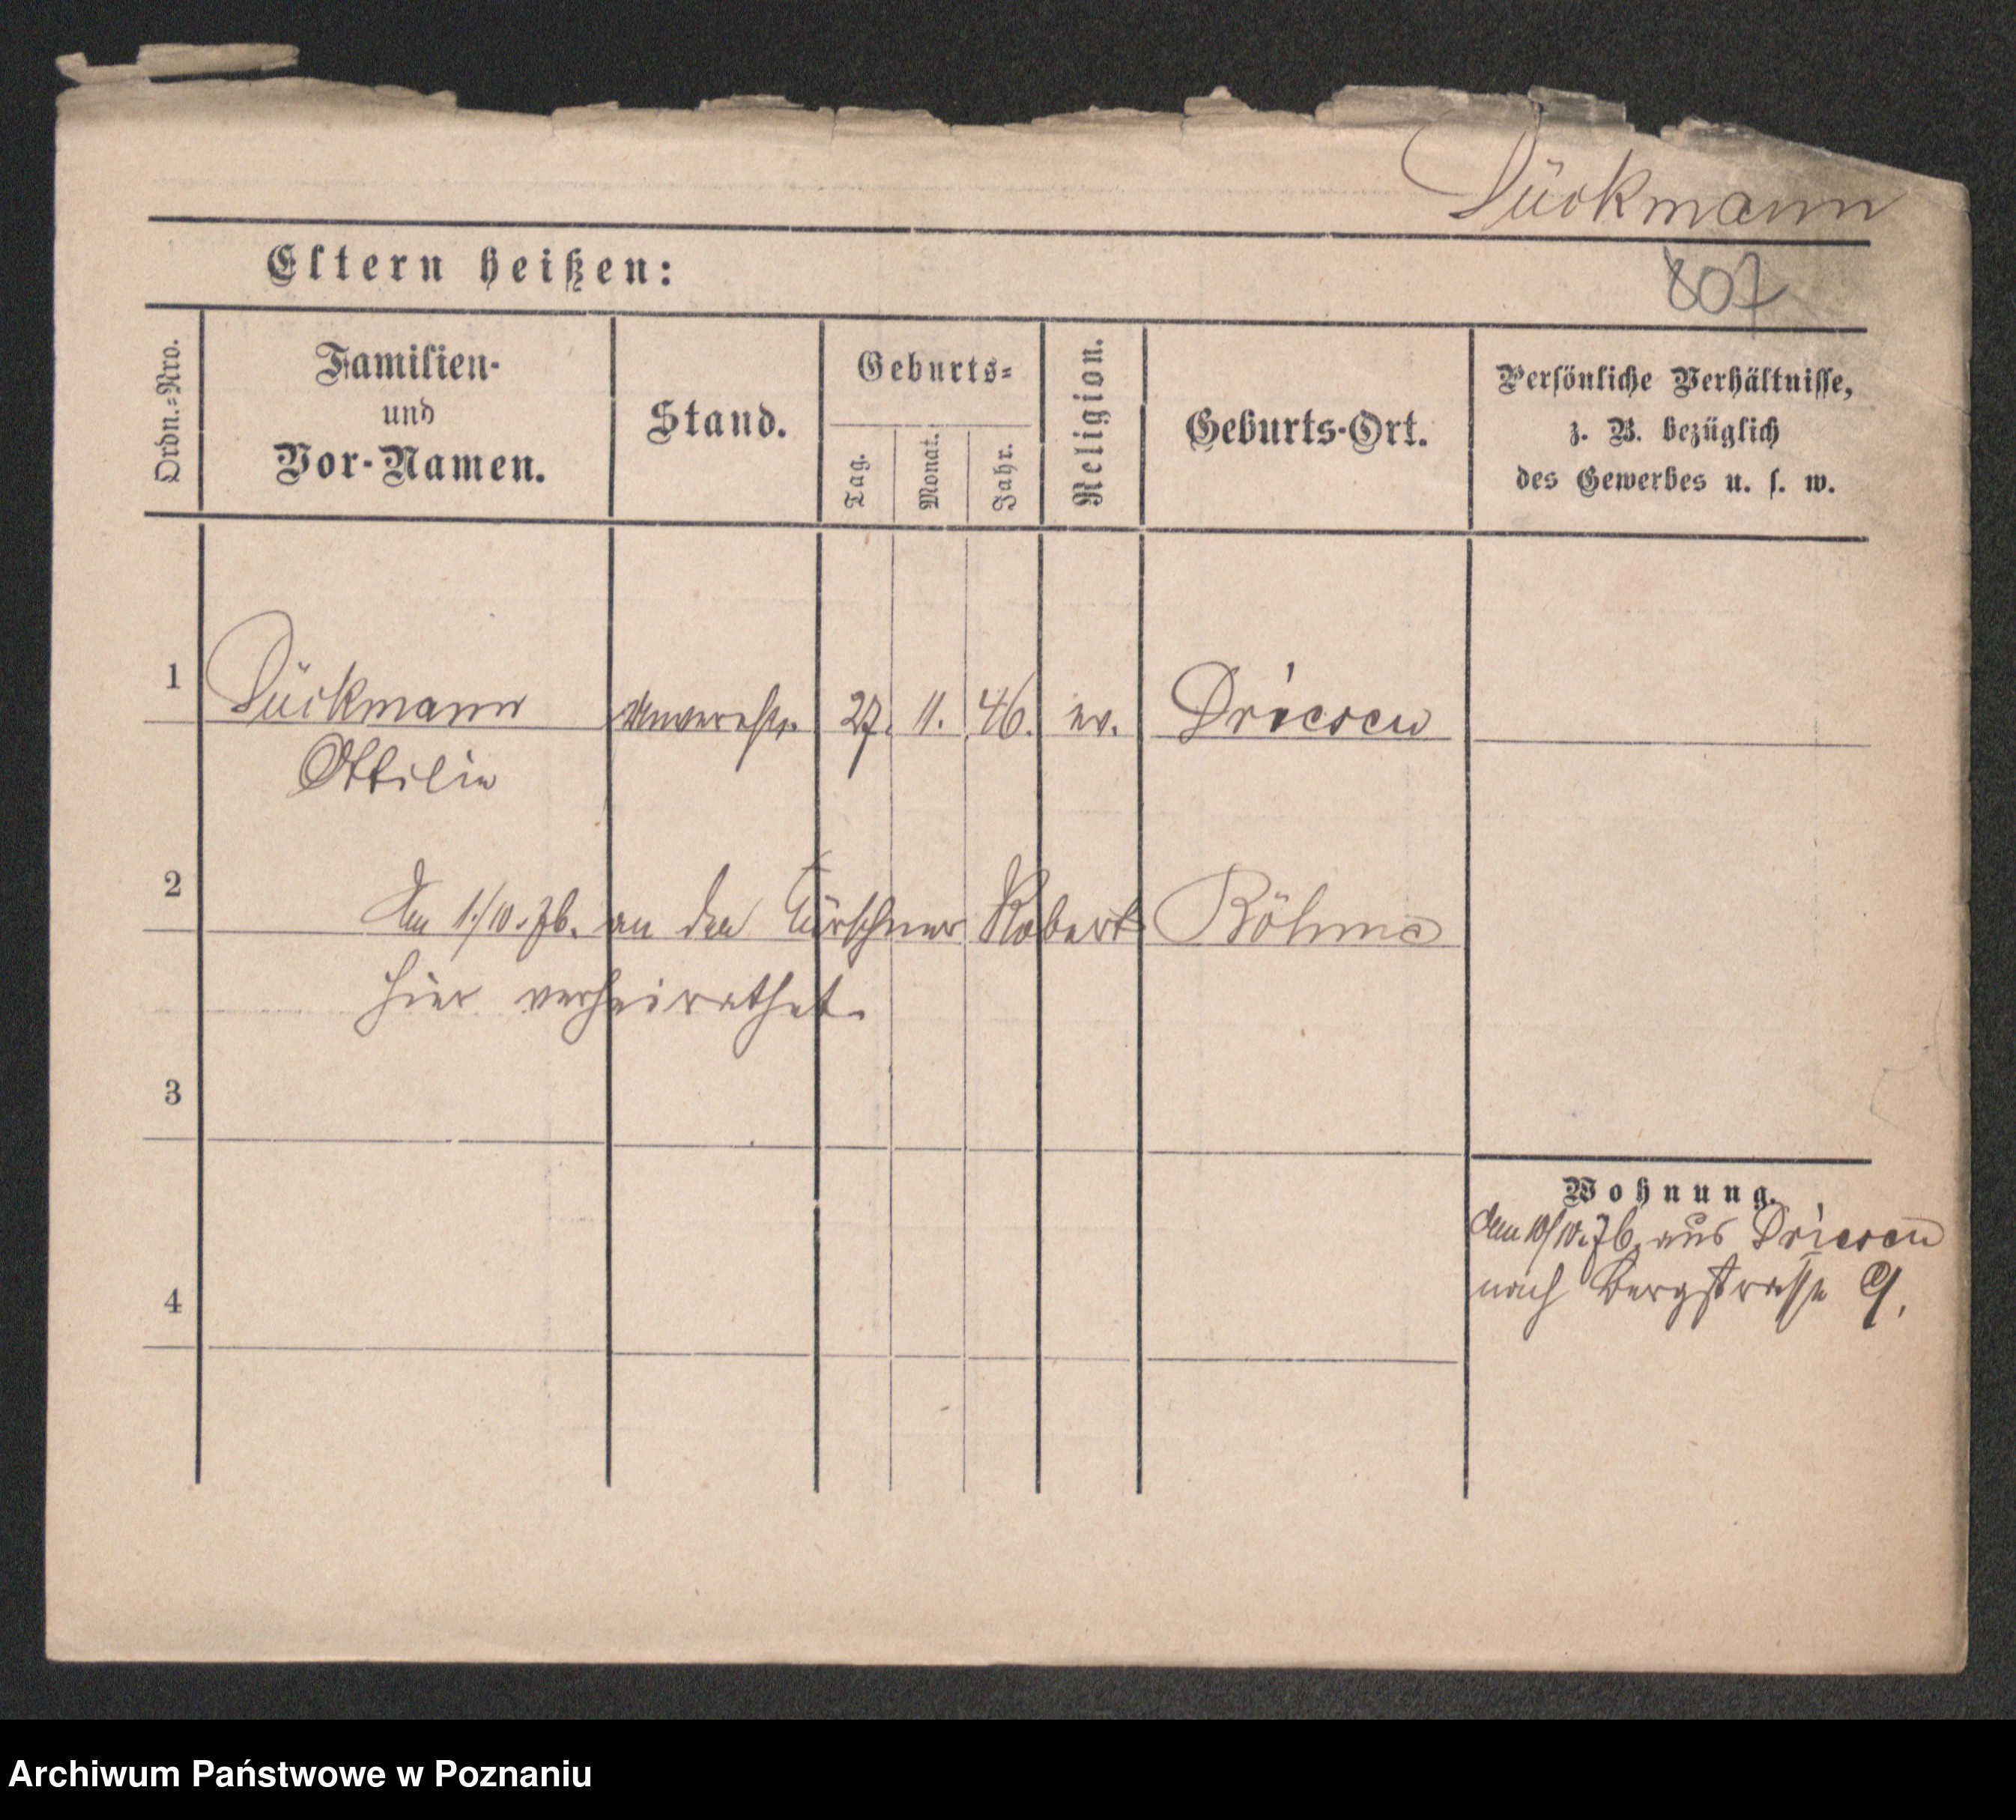 Lückmann
Eltern heißen:
807
Ordn.-Nro.
Familien-
und
Vor-Namen.
Stand.
Geburts-
Tag.
Monat.
Jahr.
Religion.
Geburts-Ort.
Persönliche Verhältnisse,
z. B. bezüglich
des Gewerbes u. s. w.
1
Lückmann unverehl. 27. 11. 46. ev. Driesen
Ottilie
2
Am 1./10. 76. an den Kürschner Robert Böhme
hier verheirathet.
3
Wohnung.
den 10/10. 76. aus Driesen
nach Bergstrasse 9.
4
Archiwum Państwowe w Poznaniu